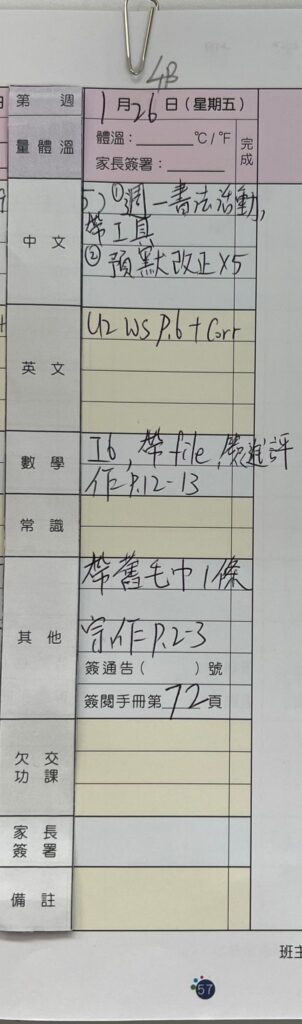 4B
第 週
1月26日(星期五)
量體溫
體溫:______°C/°F
家長簽署:______
完成
中文
5) ①週一書法活動,
帶工具
②預默改正×5
英文
U2 WS P.6 + Corr
數學
16, 帶file,
評
作二P.12-13
常識
其他
帶舊毛巾1條
宗作二P.2-3
簽通告( )號
簽閱手冊第72頁
欠交功課
家長簽署
備註
班主
57